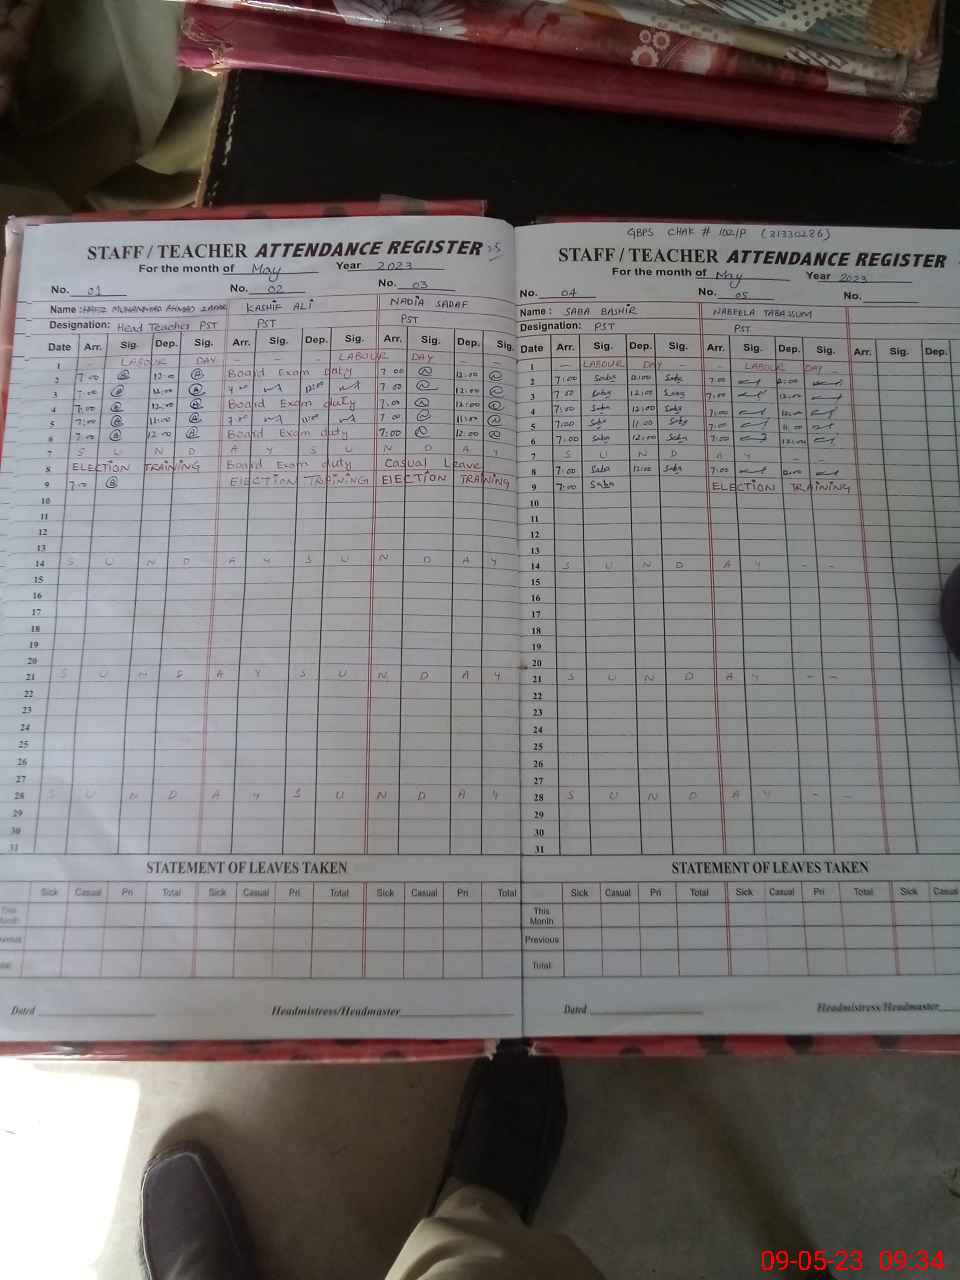 STAFF / TEACHER ATTENDANCE REGISTER
For the month of May Year 2023
No. 01 No. 02 No. 03
Name : MUHAMMAD AHMAD KASHIF ALI NADIA SADAF
Designation: Head Teacher PST PST PST
Date Arr. Sig. Dep. Sig. Arr. Sig. Dep. Sig. Arr. Sig. Dep. Sig.
1 LABOUR DAY - - - LABOUR DAY - -
2 7:00 12:00 Board Exam duty 7:00 12:00
3 7:00 12:00 7:00 12:00 7:00 12:00
4 7:00 12:00 Board Exam duty 7:00 12:00
5 7:00 11:00 7:00 11:00 7:00 11:00
6 7:00 12:00 Board Exam duty 7:00 12:00
7 S U N D A Y S U N D A Y
8 ELECTION TRAINING Board Exam duty Casual Leave
9 7:00 ELECTION TRAINING ELECTION TRAINING
10
11
12
13
14 S U N D A Y S U N D A Y
15
16
17
18
19
20
21 S U N D A Y S U N D A Y
22
23
24
25
26
27
28 S U N D A Y S U N D A Y
29
30
31
STATEMENT OF LEAVES TAKEN
Sick Casual Pri Total Sick Casual Pri Total Sick Casual Pri Total
This Month
Dated Headmistress/Headmaster
GBPS CHAK # 102/P (31330286)
STAFF / TEACHER ATTENDANCE REGISTER
For the month of May Year 2023
No. 04 No. 05 No.
Name : SABA BASHIR NABEELA TABASSUM
Designation: PST PST
Date Arr. Sig. Dep. Sig. Arr. Sig. Dep. Sig. Arr. Sig. Dep.
1 - LABOUR DAY - - LABOUR DAY -
2 7:00 Saba 12:00 Saba 7:00 12:00
3 7:00 Saba 12:00 Saba 7:00 12:00
4 7:00 Saba 12:00 Saba 7:00 12:00
5 7:00 Saba 11:00 Saba 7:00 11:00
6 7:00 Saba 12:00 Saba 7:00 12:00
7 S U N D A Y - -
8 7:00 Saba 12:00 Saba 7:00 12:00
9 7:00 Saba ELECTION TRAINING
10
11
12
13
14 S U N D A Y - -
15
16
17
18
19
20
21 S U N D A Y - -
22
23
24
25
26
27
28 S U N D A Y - -
29
30
31
STATEMENT OF LEAVES TAKEN
Sick Casual Pri Total Sick Casual Pri Total Sick Casual
This Month
Previous
Total
Dated Headmistress/Headmaster
09-05-23 09:34